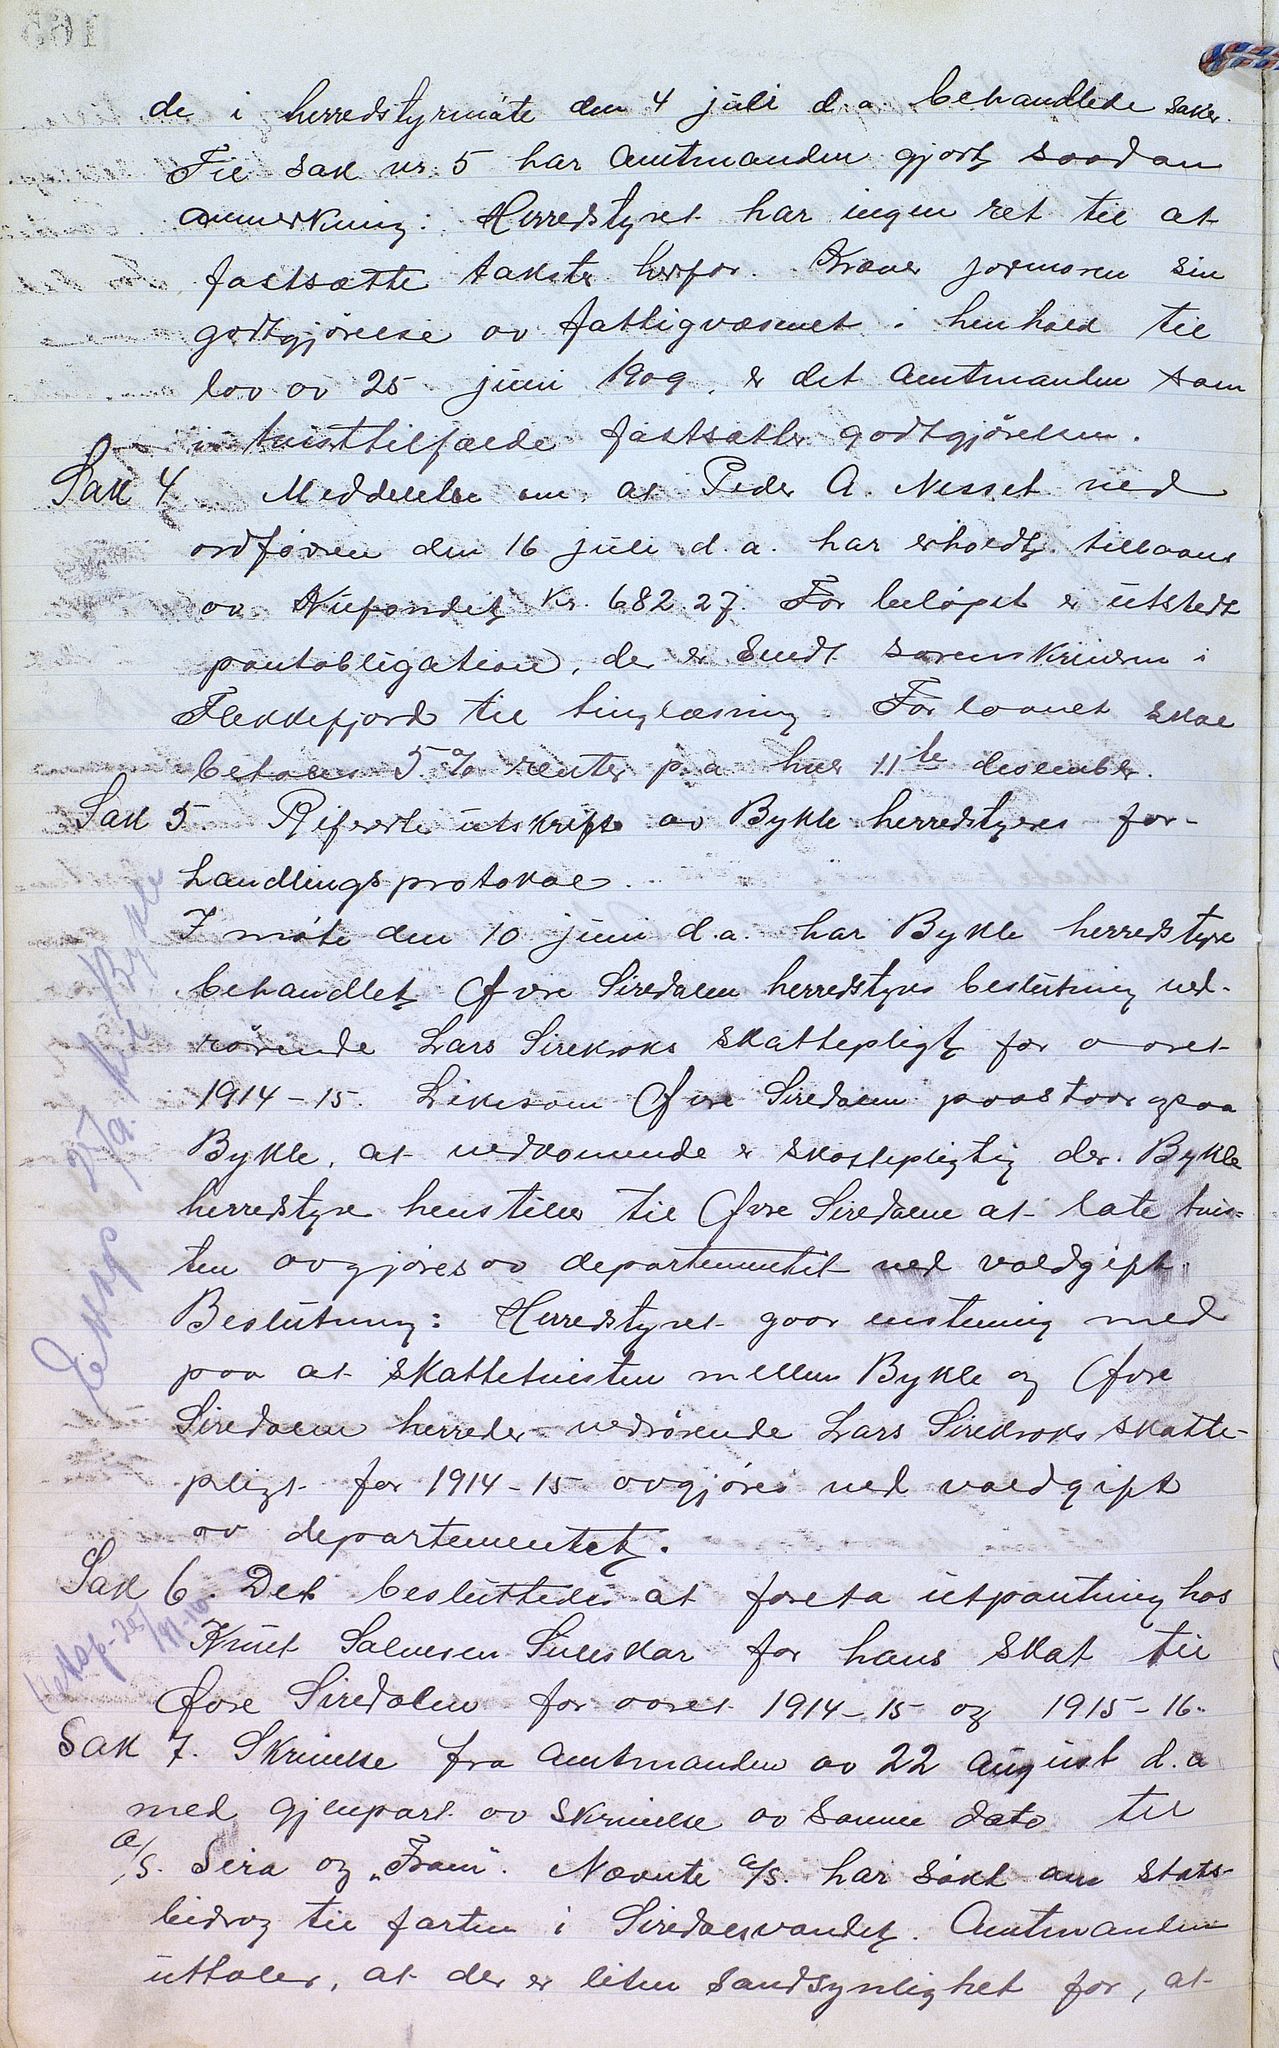 de i herredstyrmøte den 4 juli d.a. behandlede saker.
Til sak nr. 5 har Amtmanden gjort saadan
anmerkning: Herredstyret har ingen ret til at
fastsætte takster herfor. Kræver jormoren sin
godtgjørelse av fattigvæsenet i henhold til
lov av 25 juni 1909, er det Amtmanden som
i tvisttilfælde fastsætter godtgjørelsen.
Sak 4. Meddelelse om, at Peder A. Nesset ved
ordføren den 16 juli d.a. har erholdt tillaans
av Niefondet Kr. 682.27. For beløpet er utstedt
pantobligation, der er sendt sorenskriveren i
Flekkefjord til tinglæsning. For laanet skal
betales 5 % renter p.a. hver 11te desember.
Sak 5. Referert utskrift av Bykle herredstyres for-
handlingsprotokol.
I møte den 10 juni d.a. har Bykle herredstyre
behandlet Øvre Siredalen herredstyres beslutning ved-
rørende Lars Sirekroks skattepligt for aaret
1914-15. Likesom Øvre Siredalen paastaar ogsaa
Bykle, at vedkomende er skattepligtig der. Bykle
herredstyre henstiller til Øvre Siredalen at late tvis-
ten avgjøres av departementet ved voldgift.
Beslutning: Herredstyret gaar enstemig med
paa at skattetvisten mellem Bykle og Øvre
Siredalen herreder vedrørende Lars Sirekroks skatte-
pligt for 1914-15 avgjøres ved voldgift
av departementet.
Eksp 25/9. til Bykle
Sak 6. Det besluttedes at foreta utpantning hos
Knut Salvesen Suleskar for hans skat til
Øvre Siredalen for aaret 1914-15 og 1915-16.
Sak 7. Skrivelse fra Amtmanden av 22 August d.a
med gjenpart av skrivelse av samme dato til
A/S. Sira og "Fram". Nævnte A/S. har søkt om stats-
bidrag til farten i Siredalsvandet. Amtmanden
uttaler, at der er liten sandsynlighet for, at